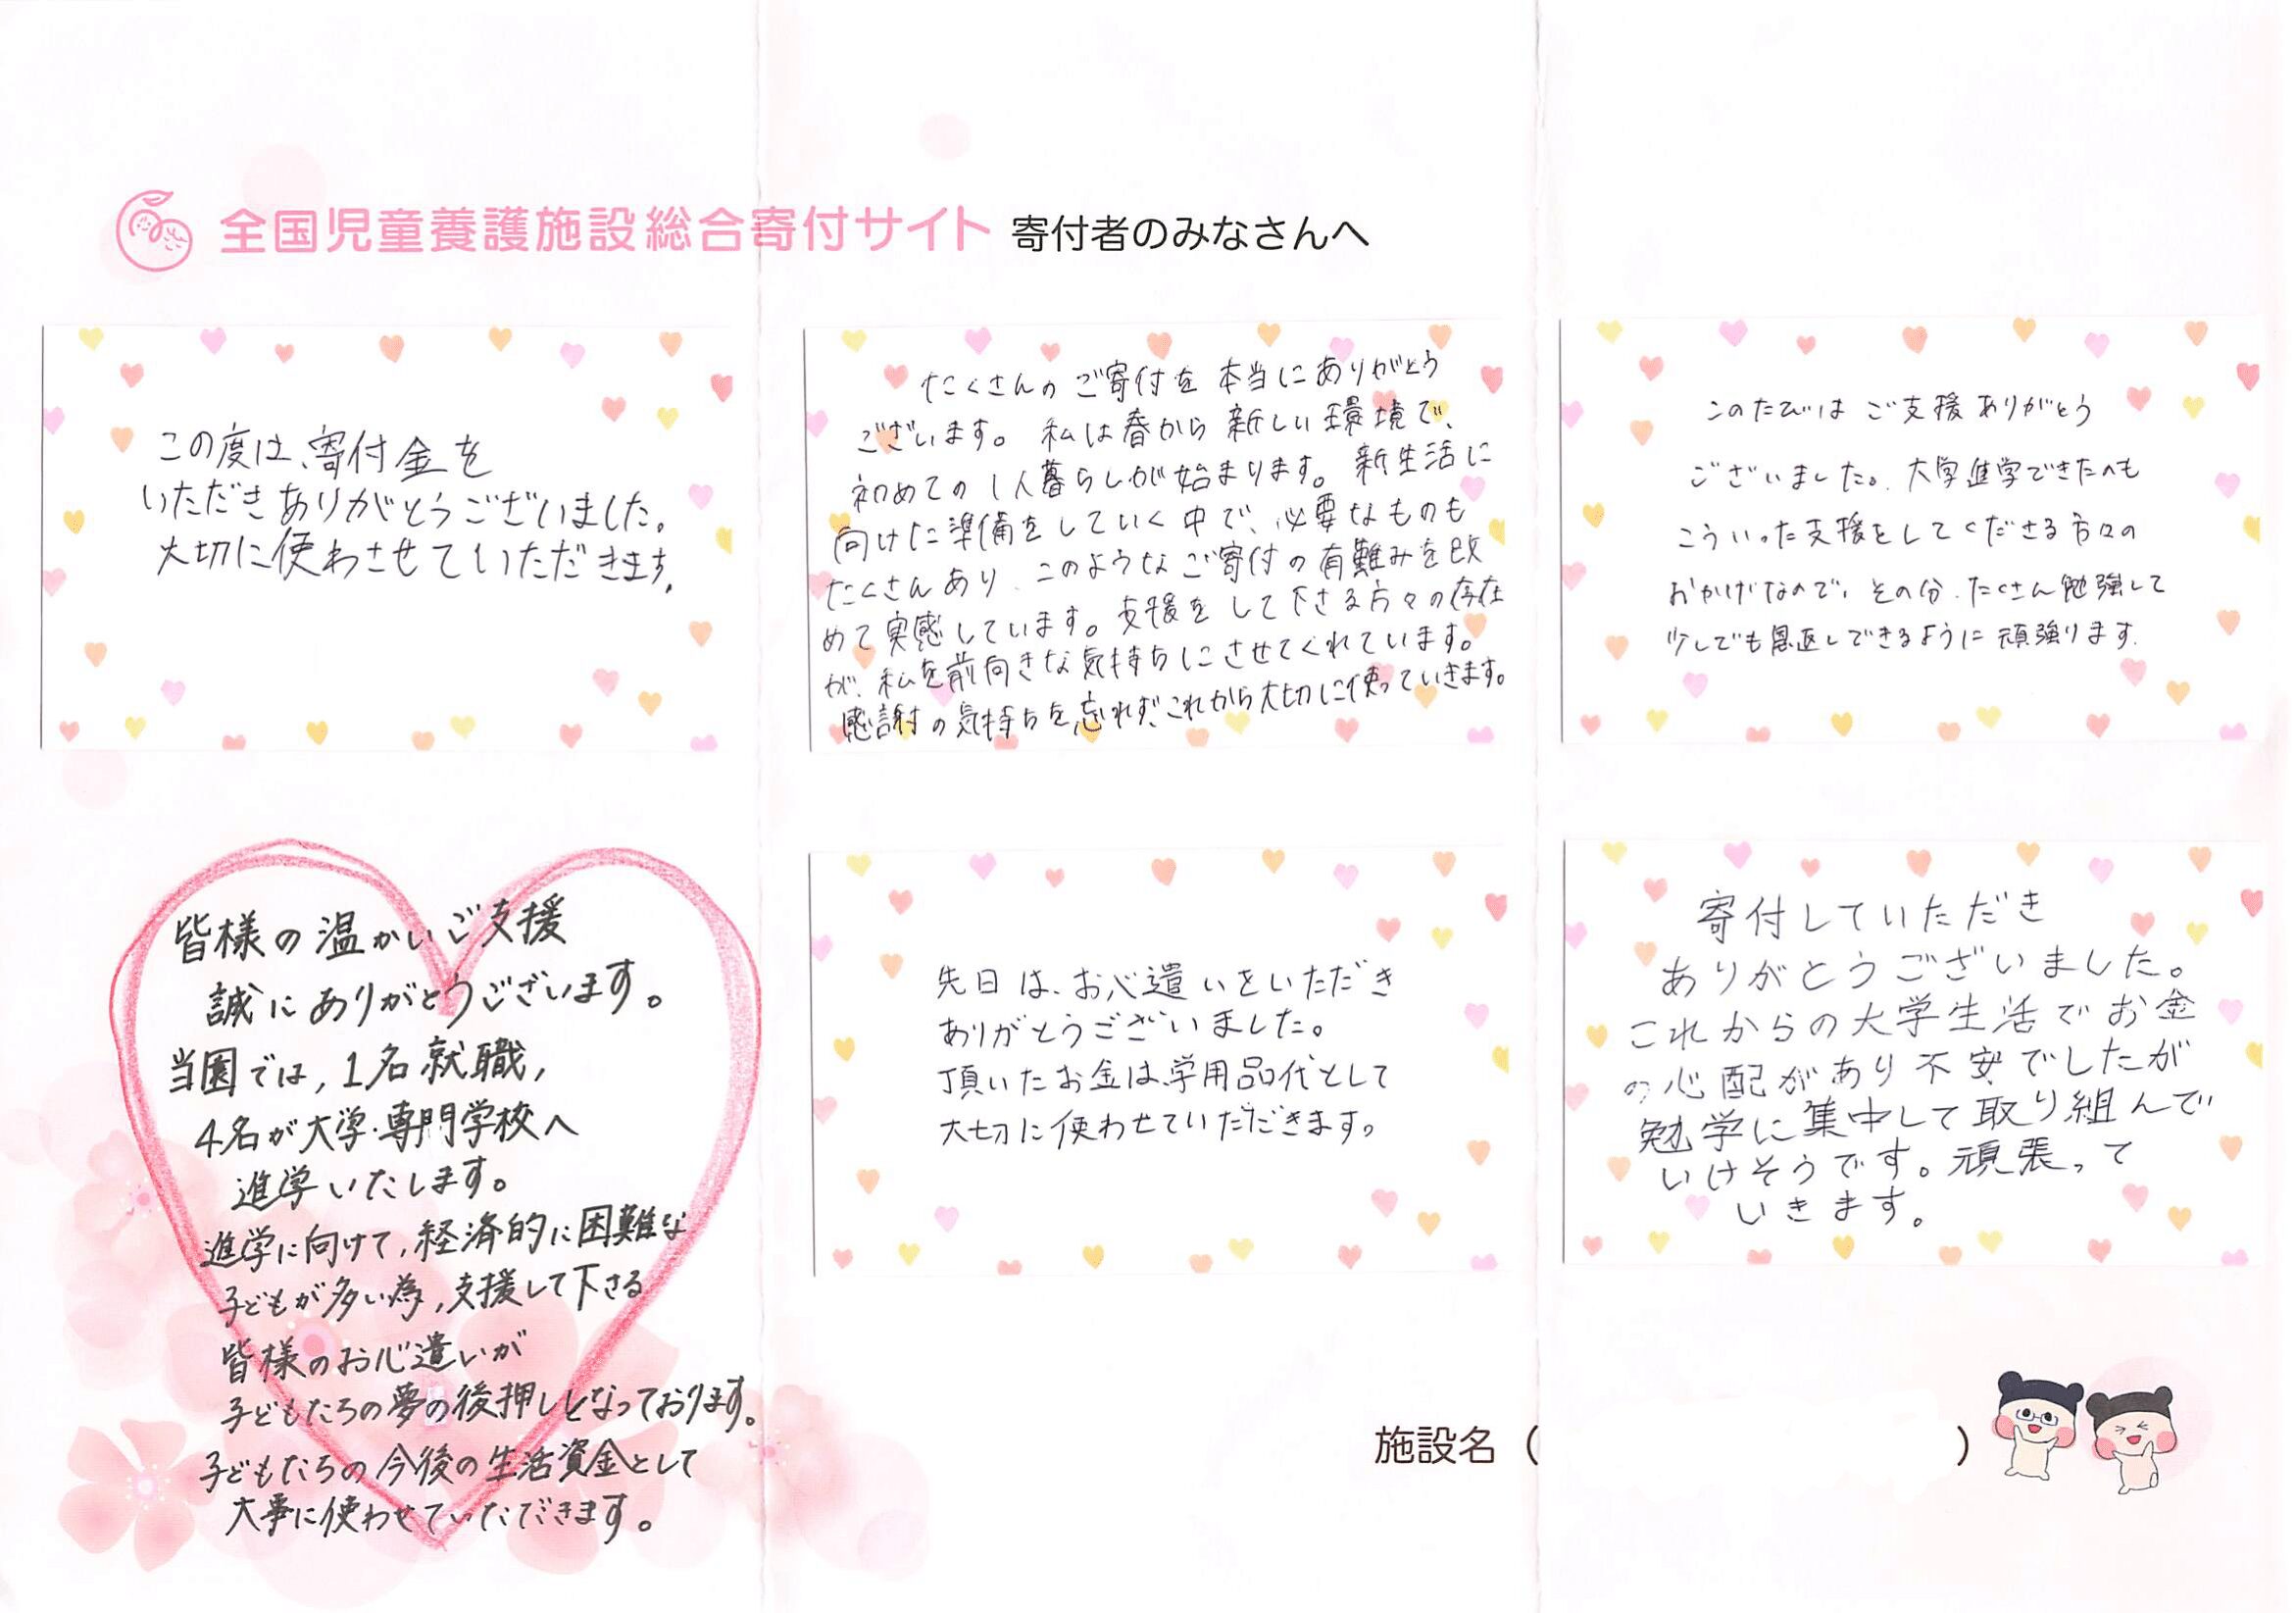 全国児童養護施設総合寄付サイト 寄付者のみなさんへ
この度は、寄付金を
いただきありがとうございました。
大切に使わさせていただきます。
たくさんの ご寄付を 本当に ありがとう
ございます。 私は春から 新しい環境で、
初めての 1人暮らしが始まります。 新生活に
向けた準備をしていく中で、必要なものも
たくさんあり、このようなご寄付の有難みを改
めて実感しています。支援をして下さる方々の存在
が、私を前向きな気持ちにさせてくれています。
感謝の気持ちを忘れず、これから大切に使っていきます。
このたびは ご支援 ありがとう
ございました。大学進学できたのも
こういった支援をしてくださる方々の
おかげなので、その分、たくさん勉強して
少しでも恩返しできるように頑張ります。
皆様の温かいご支援
誠にありがとうございます。
当園では,1名就職,
4名が大学・専門学校へ
進学いたします。
進学に向けて,経済的に困難な
子どもが多い為,支援して下さる
皆様のお心遣いが
子どもたちの夢の後押しとなっております。
子どもたちの今後の生活資金として
大事に使わせていただきます。
先日は、お心遣いをいただき
ありがとうございました。
頂いたお金は、学用品代として
大切に使わせていただきます。
寄付していただき
ありがとうございました。
これからの大学生活でお金
の心配があり不安でしたが
勉学に集中して取り組んで
いけそうです。頑張って
いきます。
施設名（ ）